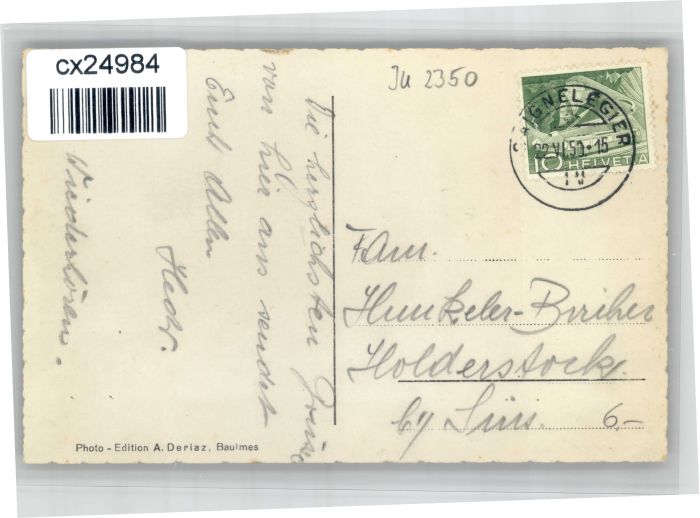 cx24984
Ju 2350
SAIGNELÉGIER
22.VI.50-15
10 HELVETIA
Die herzlichsten Grüsse
von hier aus sendet
Euch Allen
Hedy.
Wiederhören.
Fam.
Hunkeler-Bircher
Holderstock
by Sins.
6,-
Photo - Edition A. Deriaz, Baulmes